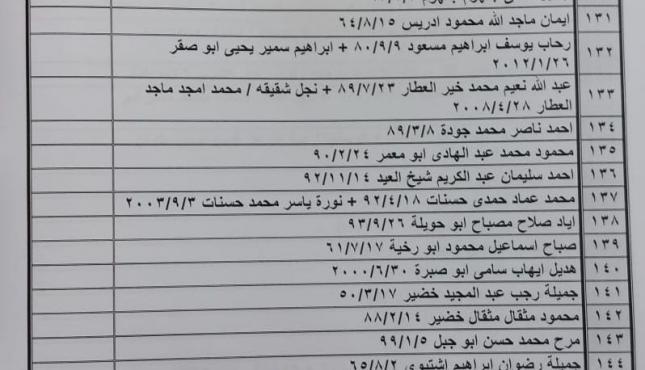 ١٣١ ايمان ماجد الله محمود ادريس ٦٤/٨/١٥
١٣٢ رحاب يوسف ابراهيم مسعود ٨٠/٩/٩ + ابراهيم سمير يحيى ابو صقر
٢٠١٢/١/٢٦
١٣٣ عبد الله نعيم محمد خير العطار ٨٩/٧/٢٣ + نجل شقيقه / محمد امجد ماجد
العطار ٢٠٠٨/٤/٢٨
١٣٤ احمد ناصر محمد جودة ٨٩/٣/٨
١٣٥ محمود محمد عبد الهادى ابو معمر ٩٠/٢/٢٤
١٣٦ احمد سليمان عبد الكريم شيخ العيد ٩٢/١١/١٤
١٣٧ محمد عماد حمدى حسنات ٩٢/٤/١٨ + نورة ياسر محمد حسنات ٢٠٠٣/٩/٣
١٣٨ اياد صلاح مصباح ابو حويلة ٩٣/٩/٢٦
١٣٩ صباح اسماعيل محمود ابو رخية ٦١/٧/١٧
١٤٠ هديل ايهاب سامى ابو صبرة ٢٠٠٠/٦/٣٠
١٤١ جميلة رجب عبد المجيد خضير ٥٠/٣/١٧
١٤٢ محمود مثقال مثقال خضير ٨٨/٢/١٤
١٤٣ مرح محمد حسن ابو جبل ٩٩/١/٥
١٤٤ جميلة رضوان ابراهيم اشتيوى ٦٥/٨/٢